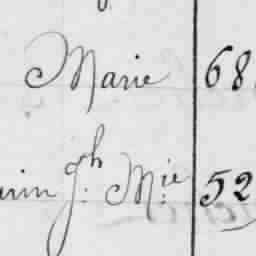 Marie 68
Jh. Mie. 52